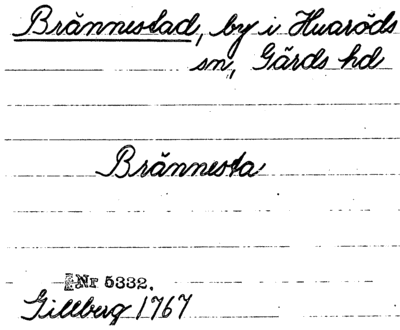 Brännestad, by i Huaröds
sn, Gärds hd
Brännesta
Nr 5332.
Gillberg 1767